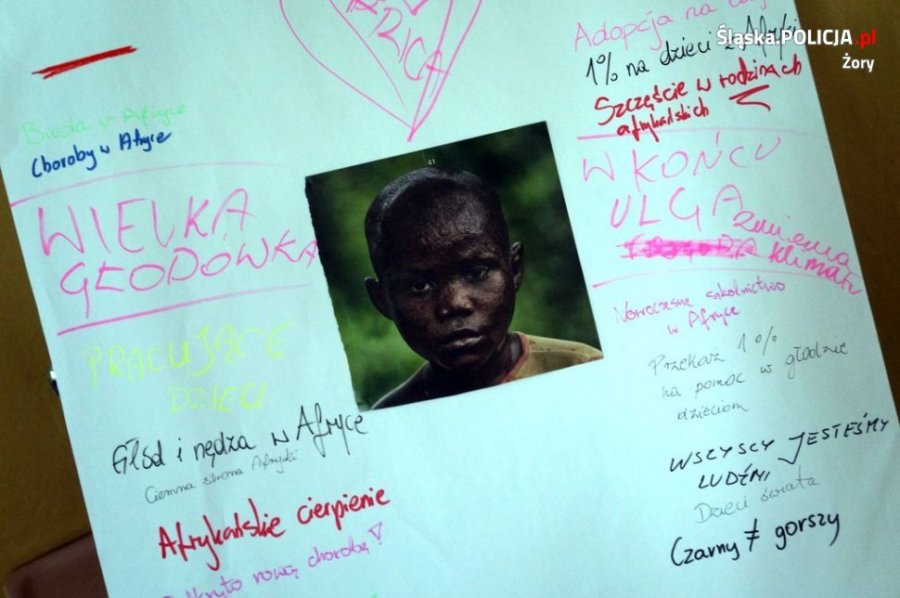 Śląska.POLICJA.pl
Żory
Bieda w Afryce
Choroby w Afryce
WIELKA
GŁODÓWKA
PRACUJĄCE
DZIECI
Głód i nędza w Afryce
Ciemna strona Afryki
Afrykańskie cierpienie
nową chorobę!
Adopcja na
1% na dzieci z Afryki
Szczęście w rodzinach
afrykańskich
W KOŃCU
ULGA zmienia
klimatu
Nowoczesne szkolnictwo
w Afryce
Przekaż 1%
na pomoc w głodzie
dzieciom
WSZYSCY JESTEŚMY
LUDŹMI
Dzieci świata
Czarny ≠ gorszy